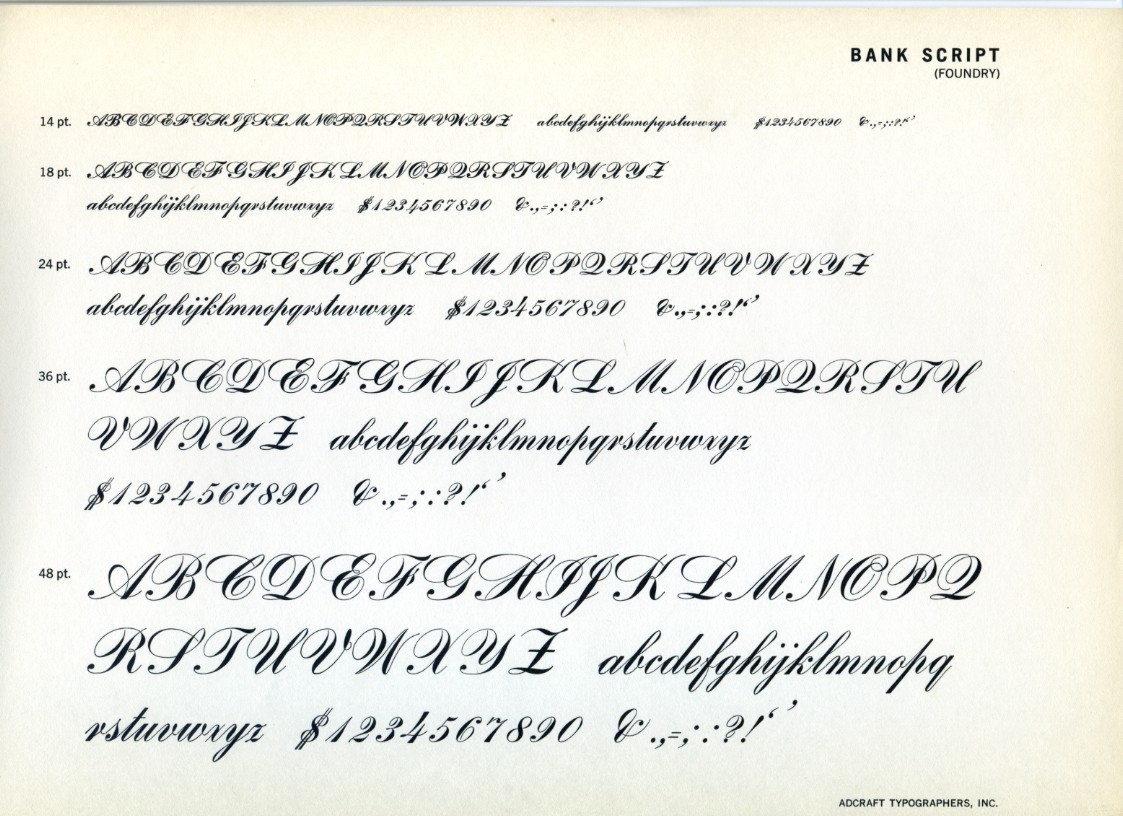 BANK SCRIPT
(FOUNDRY)
14 pt. ABCDEFGHIJKLMNOPQRSTUVWXYZ abcdefghijklmnopqrstuvwxyz $1234567890 &.,-;:?!‘’
18 pt. ABCDEFGHIJKLMNOPQRSTUVWXYZ
abcdefghijklmnopqrstuvwxyz $1234567890 &.,-;:?!‘’
24 pt. ABCDEFGHIJKLMNOPQRSTUVWXYZ
abcdefghijklmnopqrstuvwxyz $1234567890 &.,-;:?!‘’
36 pt. ABCDEFGHIJKLMNOPQRSTU
VWXYZ abcdefghijklmnopqrstuvwxyz
$1234567890 &.,-;:?!‘’
48 pt. ABCDEFGHIJKLMNOPQ
RSTUVWXYZ abcdefghijklmnopq
rstuvwxyz $1234567890 &.,-;:?!‘’
ADCRAFT TYPOGRAPHERS, INC.